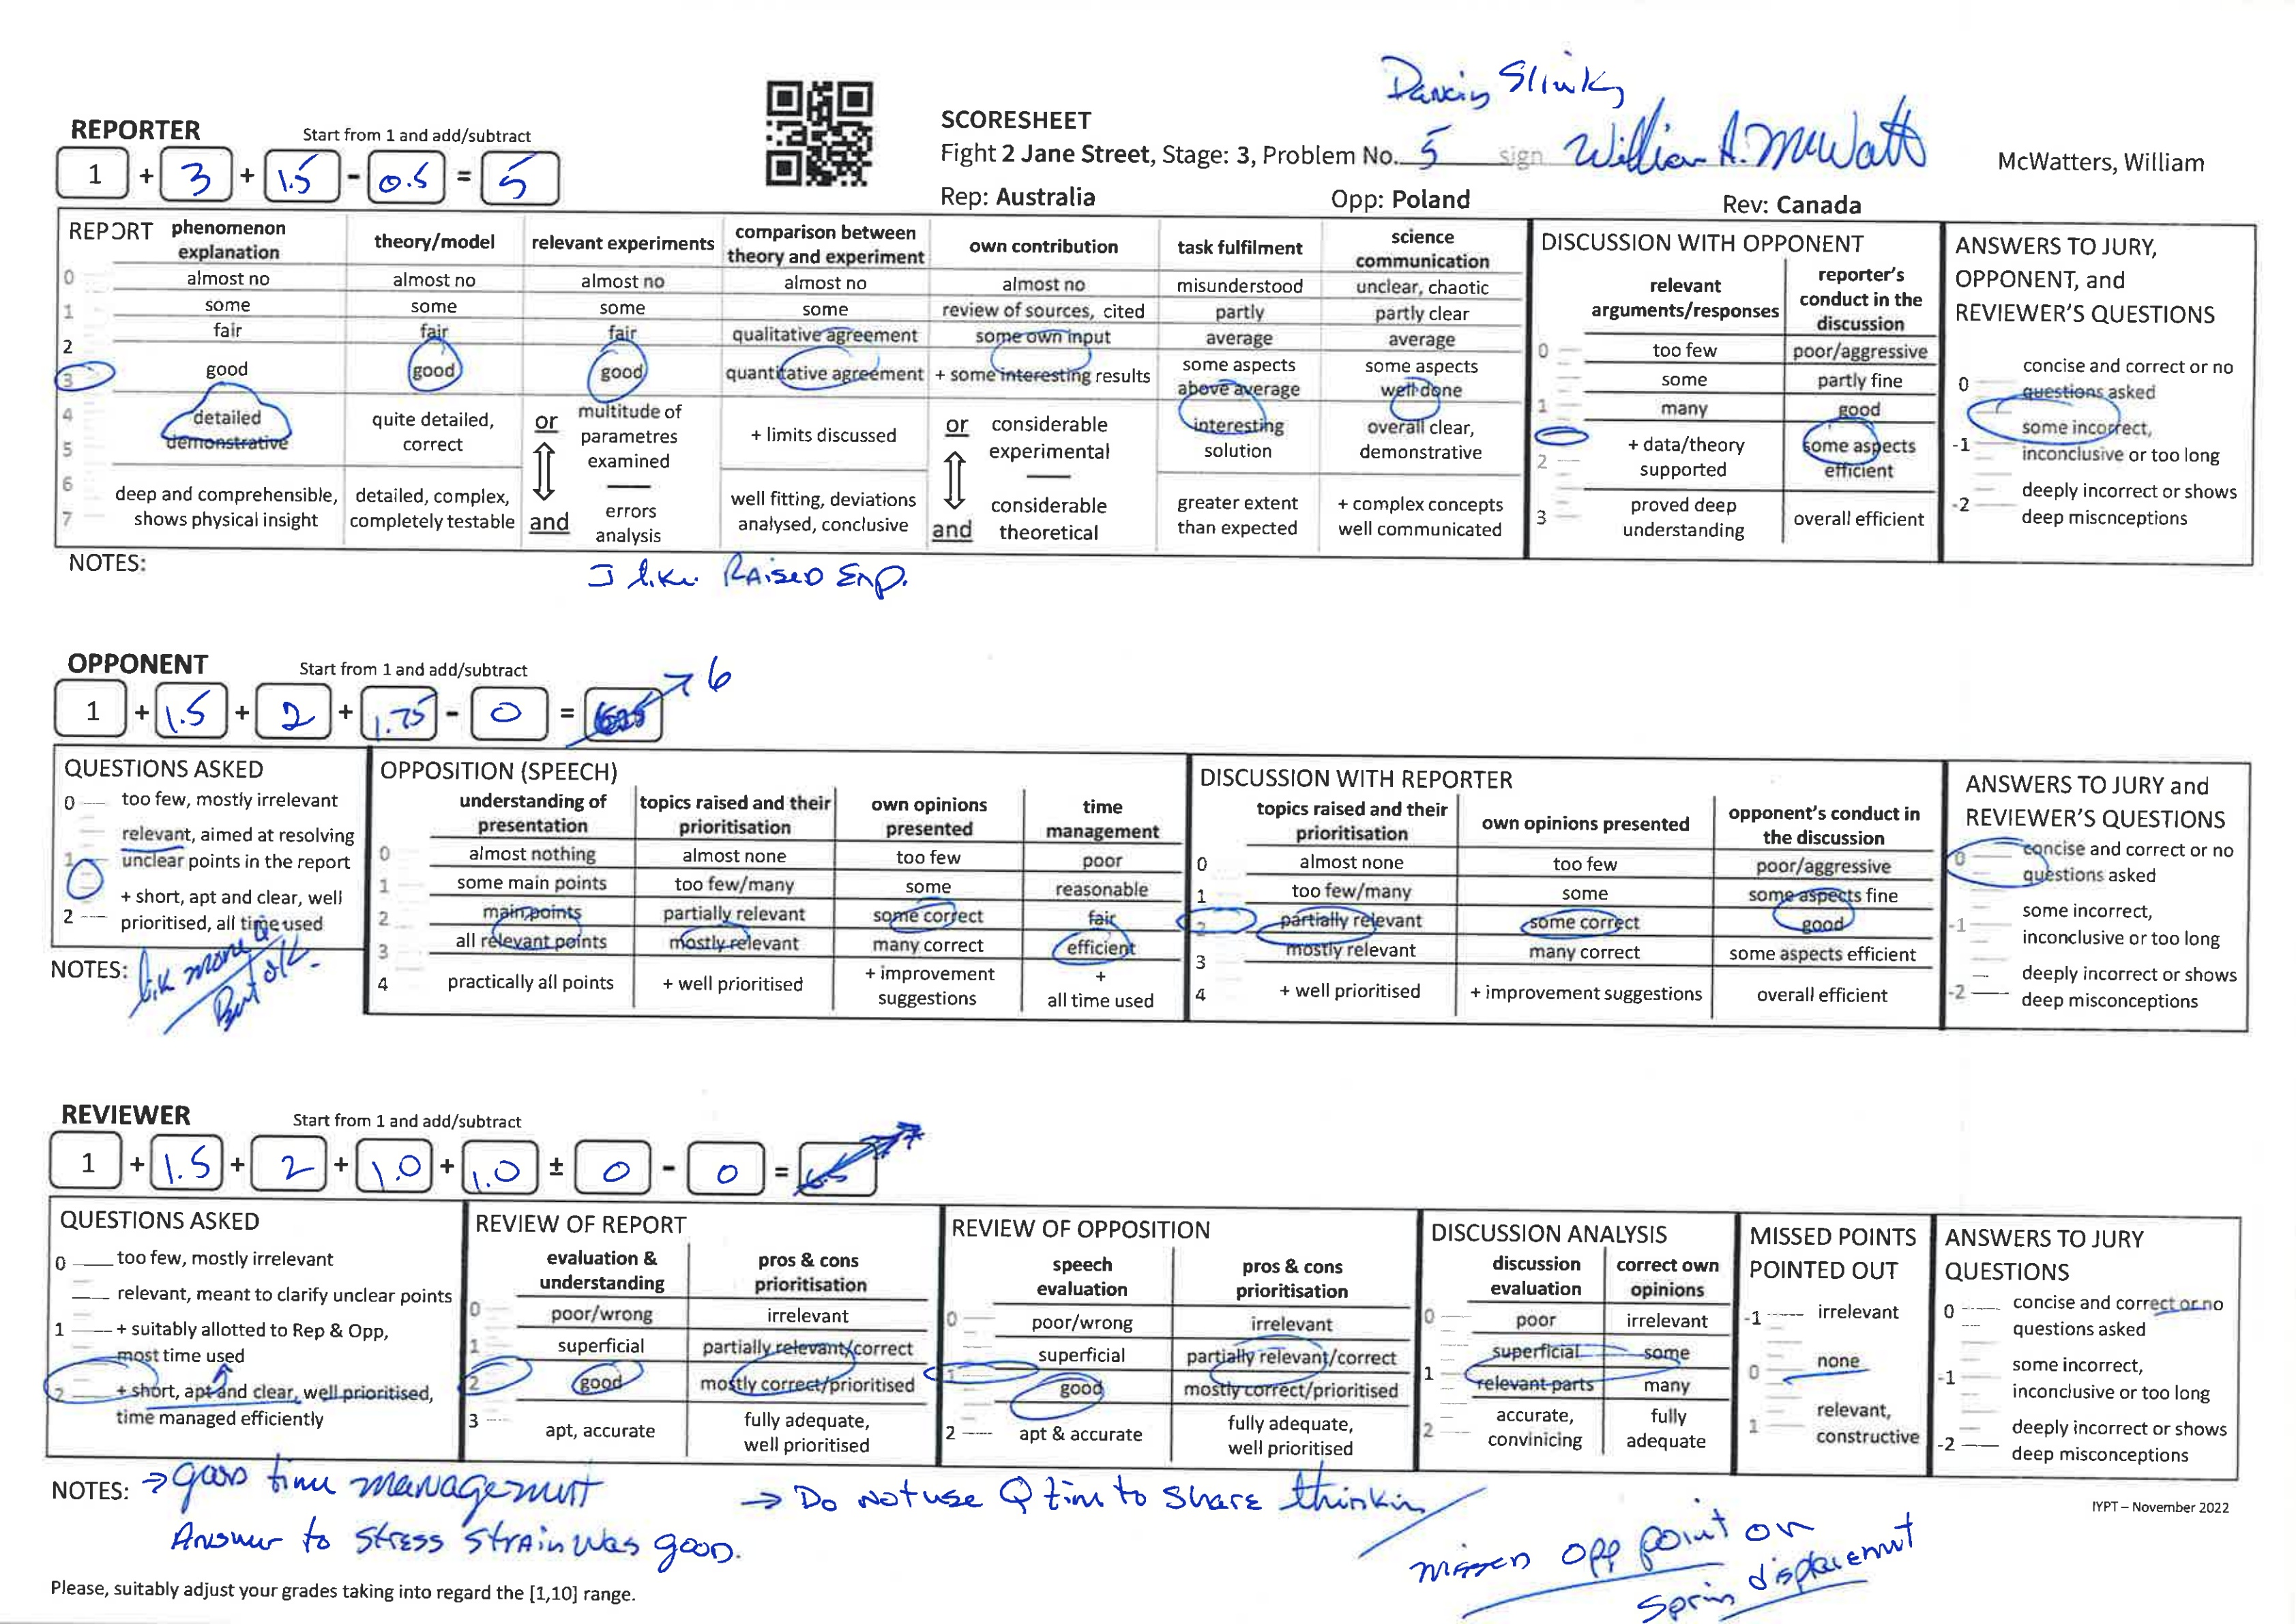 Dancing Slinky
REPORTER Start from 1 and add/subtract
1 + 3 + 1.5 - 0.5 = 5
SCORESHEET
Fight 2 Jane Street, Stage: 3, Problem No. 5 sign William A. McWatt
McWatters, William
Rep: Australia Opp: Poland Rev: Canada
REPORT
phenomenon explanation
theory/model
relevant experiments
comparison between theory and experiment
own contribution
task fulfilment
science communication
0 almost no almost no almost no almost no almost no misunderstood unclear, chaotic
1 some some some some review of sources, cited partly partly clear
2 fair fair fair qualitative agreement some own input average average
3 good good good quantitative agreement + some interesting results some aspects above average some aspects well done
4 detailed demonstrative quite detailed, correct or multitude of parametres examined + limits discussed or considerable experimental interesting solution overall clear, demonstrative
5
6 deep and comprehensible, shows physical insight detailed, complex, completely testable and errors analysis well fitting, deviations analysed, conclusive and considerable theoretical greater extent than expected + complex concepts well communicated
7
DISCUSSION WITH OPPONENT
relevant arguments/responses
reporter's conduct in the discussion
0 too few poor/aggressive
some partly fine
1 many good
2 + data/theory supported some aspects efficient
3 proved deep understanding overall efficient
ANSWERS TO JURY, OPPONENT, and REVIEWER'S QUESTIONS
0 concise and correct or no questions asked
-1 some incorrect, inconclusive or too long
-2 deeply incorrect or shows deep miscnceptions
NOTES:
I like Raised End.
OPPONENT Start from 1 and add/subtract
1 + 1.5 + 2 + 1.75 - 0 = 6
QUESTIONS ASKED
0 too few, mostly irrelevant
relevant, aimed at resolving
1 unclear points in the report
+ short, apt and clear, well
2 prioritised, all time used
NOTES: lik more Q
But ok.
OPPOSITION (SPEECH)
understanding of presentation
topics raised and their prioritisation
own opinions presented
time management
0 almost nothing almost none too few poor
1 some main points too few/many some reasonable
2 main points partially relevant some correct fair
3 all relevant points mostly relevant many correct efficient
4 practically all points + well prioritised + improvement suggestions + all time used
DISCUSSION WITH REPORTER
topics raised and their prioritisation
own opinions presented
opponent's conduct in the discussion
0 almost none too few poor/aggressive
1 too few/many some some aspects fine
2 partially relevant some correct good
3 mostly relevant many correct some aspects efficient
4 + well prioritised + improvement suggestions overall efficient
ANSWERS TO JURY and REVIEWER'S QUESTIONS
0 concise and correct or no questions asked
-1 some incorrect, inconclusive or too long
-2 deeply incorrect or shows deep misconceptions
REVIEWER Start from 1 and add/subtract
1 + 1.5 + 2 + 1.0 + 1.0 ± 0 - 0 = 6.5 7
QUESTIONS ASKED
0 too few, mostly irrelevant
relevant, meant to clarify unclear points
1 + suitably allotted to Rep & Opp, most time used
2 + short, apt and clear, well prioritised, time managed efficiently
REVIEW OF REPORT
evaluation & understanding
pros & cons prioritisation
0 poor/wrong irrelevant
1 superficial partially relevant/correct
2 good mostly correct/prioritised
3 apt, accurate fully adequate, well prioritised
REVIEW OF OPPOSITION
speech evaluation
pros & cons prioritisation
0 poor/wrong irrelevant
superficial partially relevant/correct
1 good mostly correct/prioritised
2 apt & accurate fully adequate, well prioritised
DISCUSSION ANALYSIS
discussion evaluation
correct own opinions
0 poor irrelevant
superficial some
1 relevant parts many
2 accurate, convinicing fully adequate
MISSED POINTS POINTED OUT
-1 irrelevant
0 none
1 relevant, constructive
ANSWERS TO JURY QUESTIONS
0 concise and correct or no questions asked
-1 some incorrect, inconclusive or too long
-2 deeply incorrect or shows deep misconceptions
NOTES: → good time management
Answer to stress strain was good.
→ Do not use Q tim to share thinkin
missed opp point on
sprin displacement
IYPT – November 2022
Please, suitably adjust your grades taking into regard the [1,10] range.